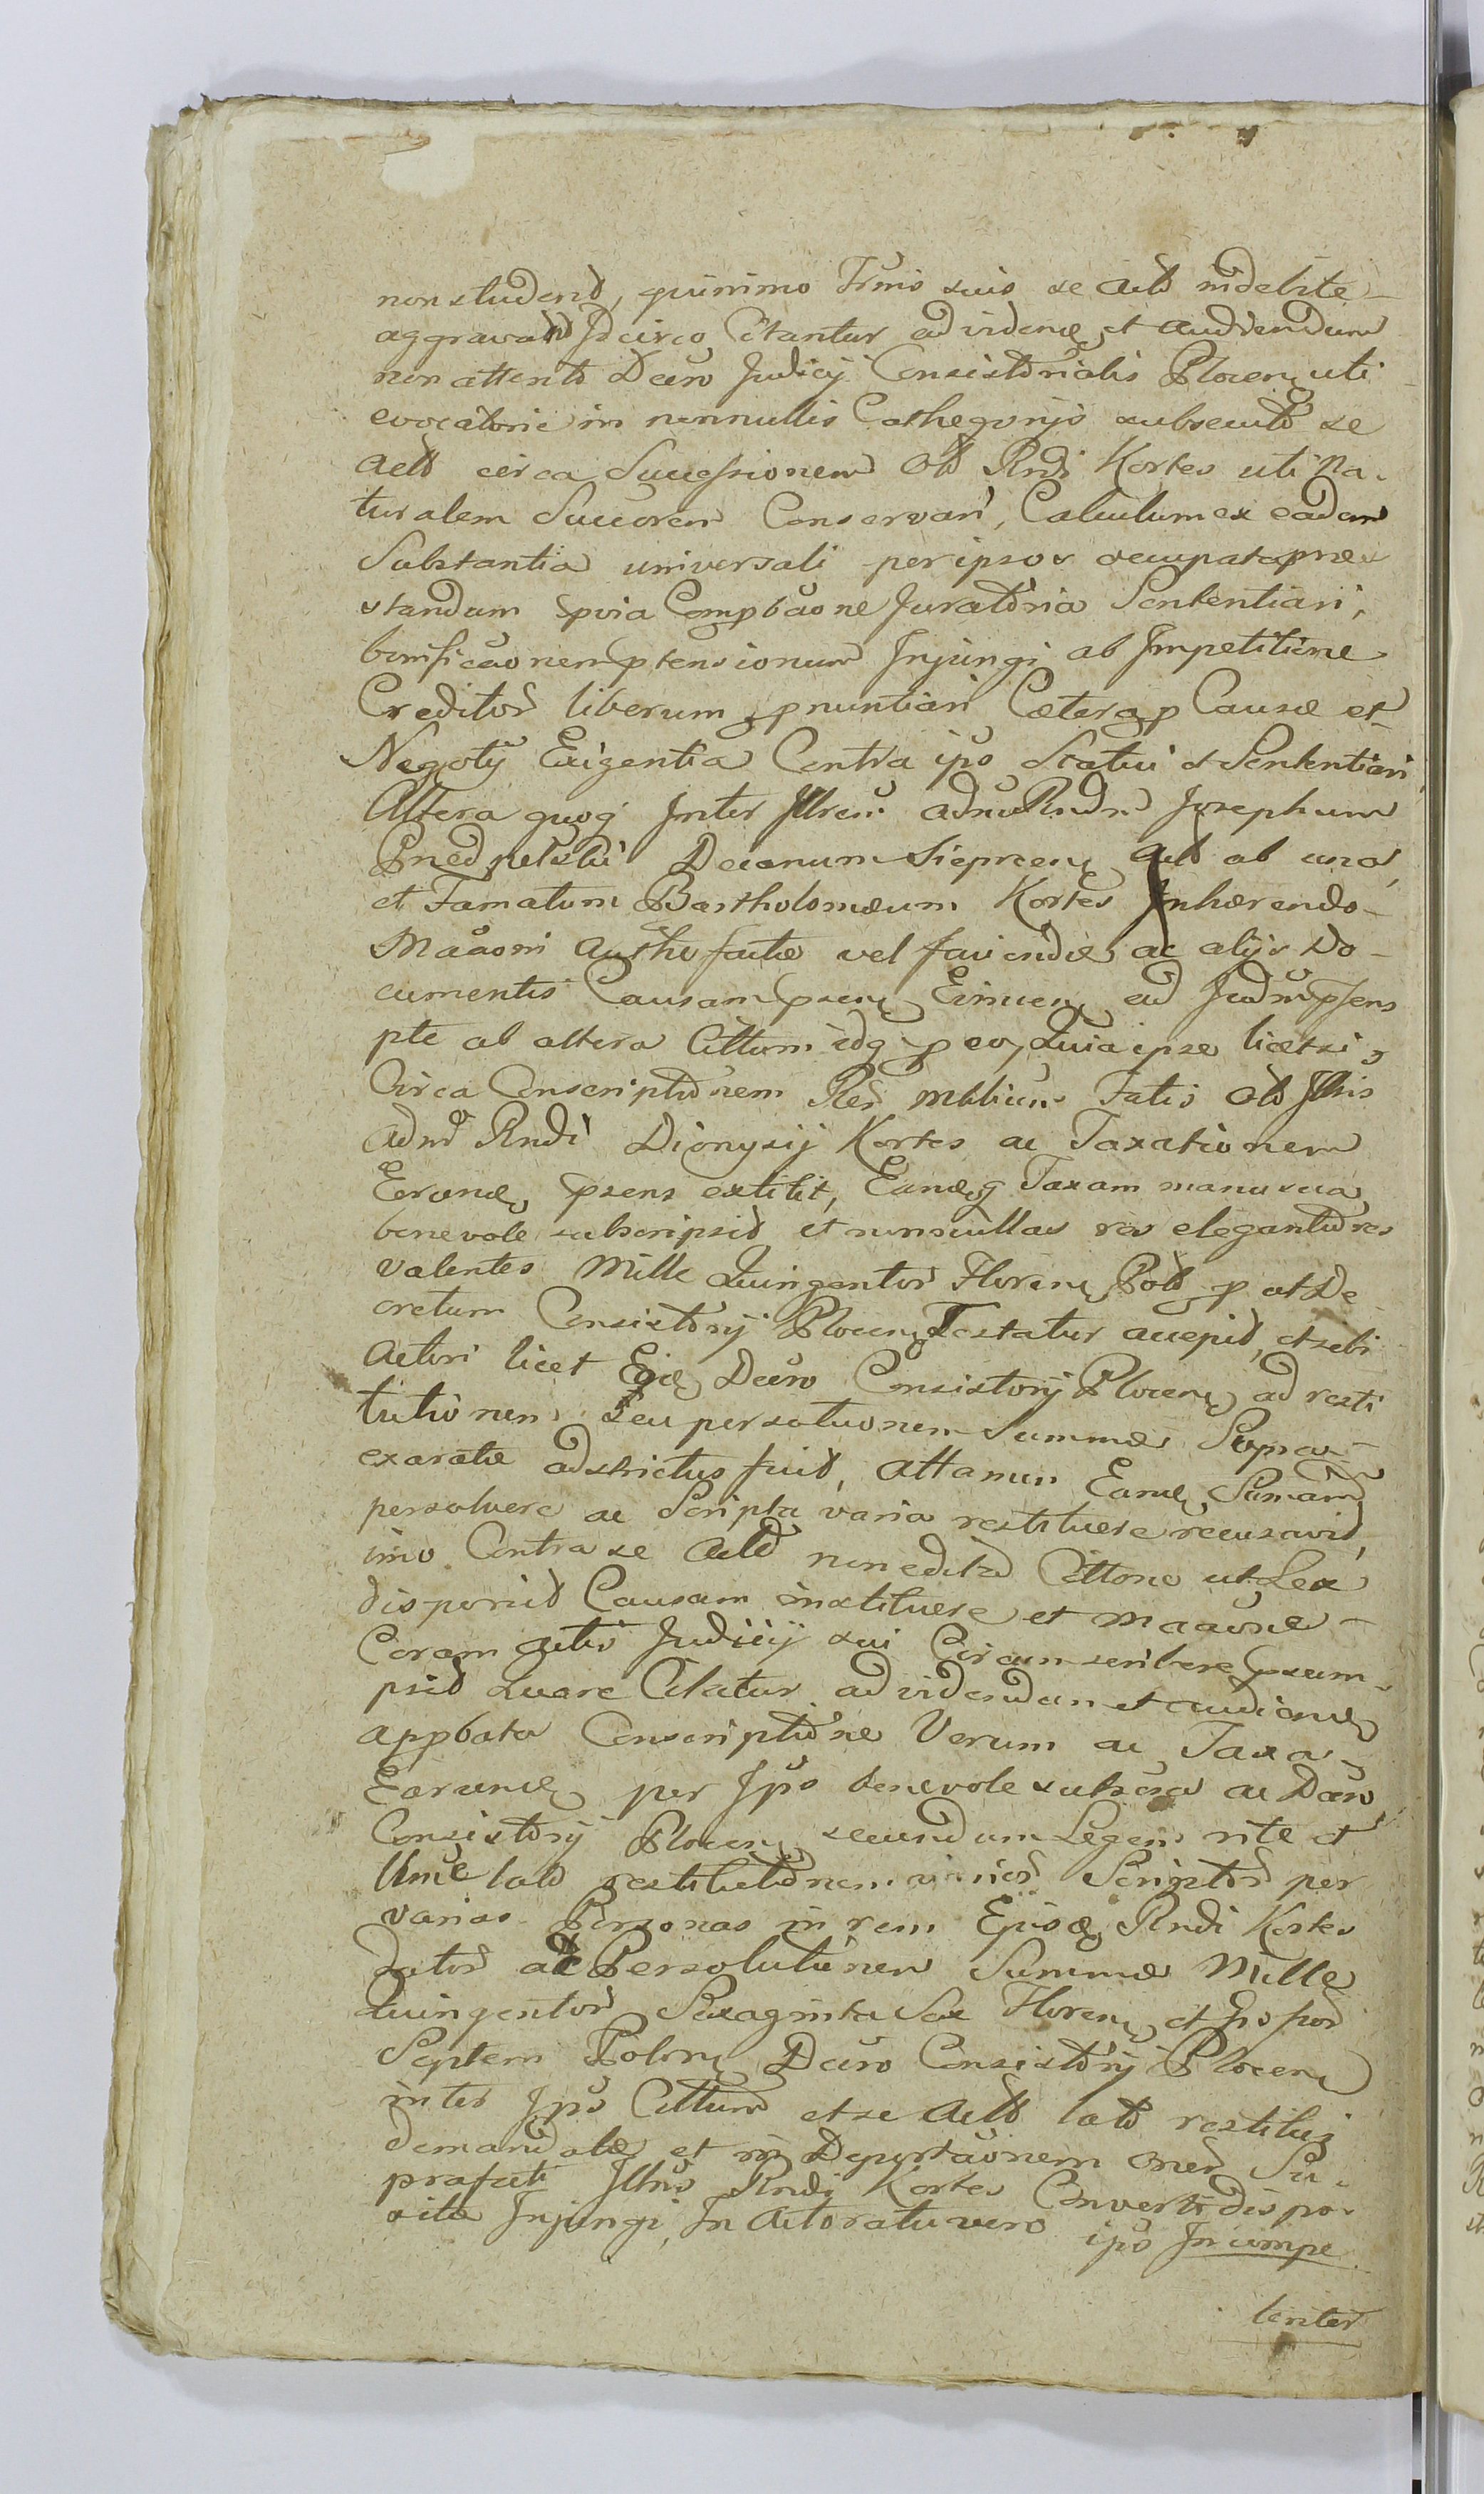 non studend, quinimo Trmis suis se Actō indebite
aggravand Idcirco Citantur ad videnđ et audiendum
non attento Decro Judicij Consistorialis Plocen uti
evocatorie in nonnullis Cathegorijs subsecuto se
Actō circa Successionem Olō Rndi Kortes uti Na-
turalem Succorem Conservari, Calculum ex eadem
Substantia universali per ipsos occupata præ-
standum pvia Compbaōne Juratoria Sententiari,
bonificāonem ptensionum Injungi ab Impetitione
Creditorō liberum pnuntiari Cætera p Causæ et
Negotij Exigentia Contra ipō Statui et Sententiari
Altera quoq Inter Illrem adm Rndm Josephum
Decanum Sieprcen Actō ab una
et Famatum Bartholomæum Kortes Inhærendo
Maāoni Autho factæ vel faciendæ ac alijs Do-
cumentis Causam ad Judm psens
pte ab altera Cittum idq p eo, Quia ipse licetsi
Circa Conscriptionem Rerō mbbilium Fatis Olō Illris
adm Rndi Dionysij Kortes ac Taxationem
Earunđ psens extitit, Eanđq Taxam manu sua
benevole subscripsit et nonnullas res elegantiores
valentes Mille Quingentos Floren Polō p ut De
cretum Consistorij Plocen Testatur accepit, et sibi
Actori licet Decro Consistorij Plocen ad resti
tutionem Seu persolutionem Summæ Supra-
exaratæ adstrictus fuit, attamen Eanđ Summam
persolvere ac Scripta varia restituere recusavit,
imo Contra se Actō non edita Cittone ut Lex
disponit Causam instituere et Maāone
Coram actis Judicij sui Circumscribere psum-
psit Quare Citatur ad videndum et audienđ
appbata Conscriptione Verum ac Taxa
Earunđ per Ipō benevole subscra ac Decro
Consistorij Plocen secundum Legem rite et
lato restitutionem Scriptorō per
varias Personas in rem Rndi Kortes
Datorō ac Persolutionem Summæ Mille
Quingentorō Sexaginta Sex Floren et
Septem Polon Decro Consistorij Plocen
inter Ipō Cittum et se Actō lato restitui
demandatæ et in Deportaōnem Su-
prafati Illris Rndi Kortes Converti dispo-
sitæ Injungi, In Actoratu vero ipō Incompe
tenter